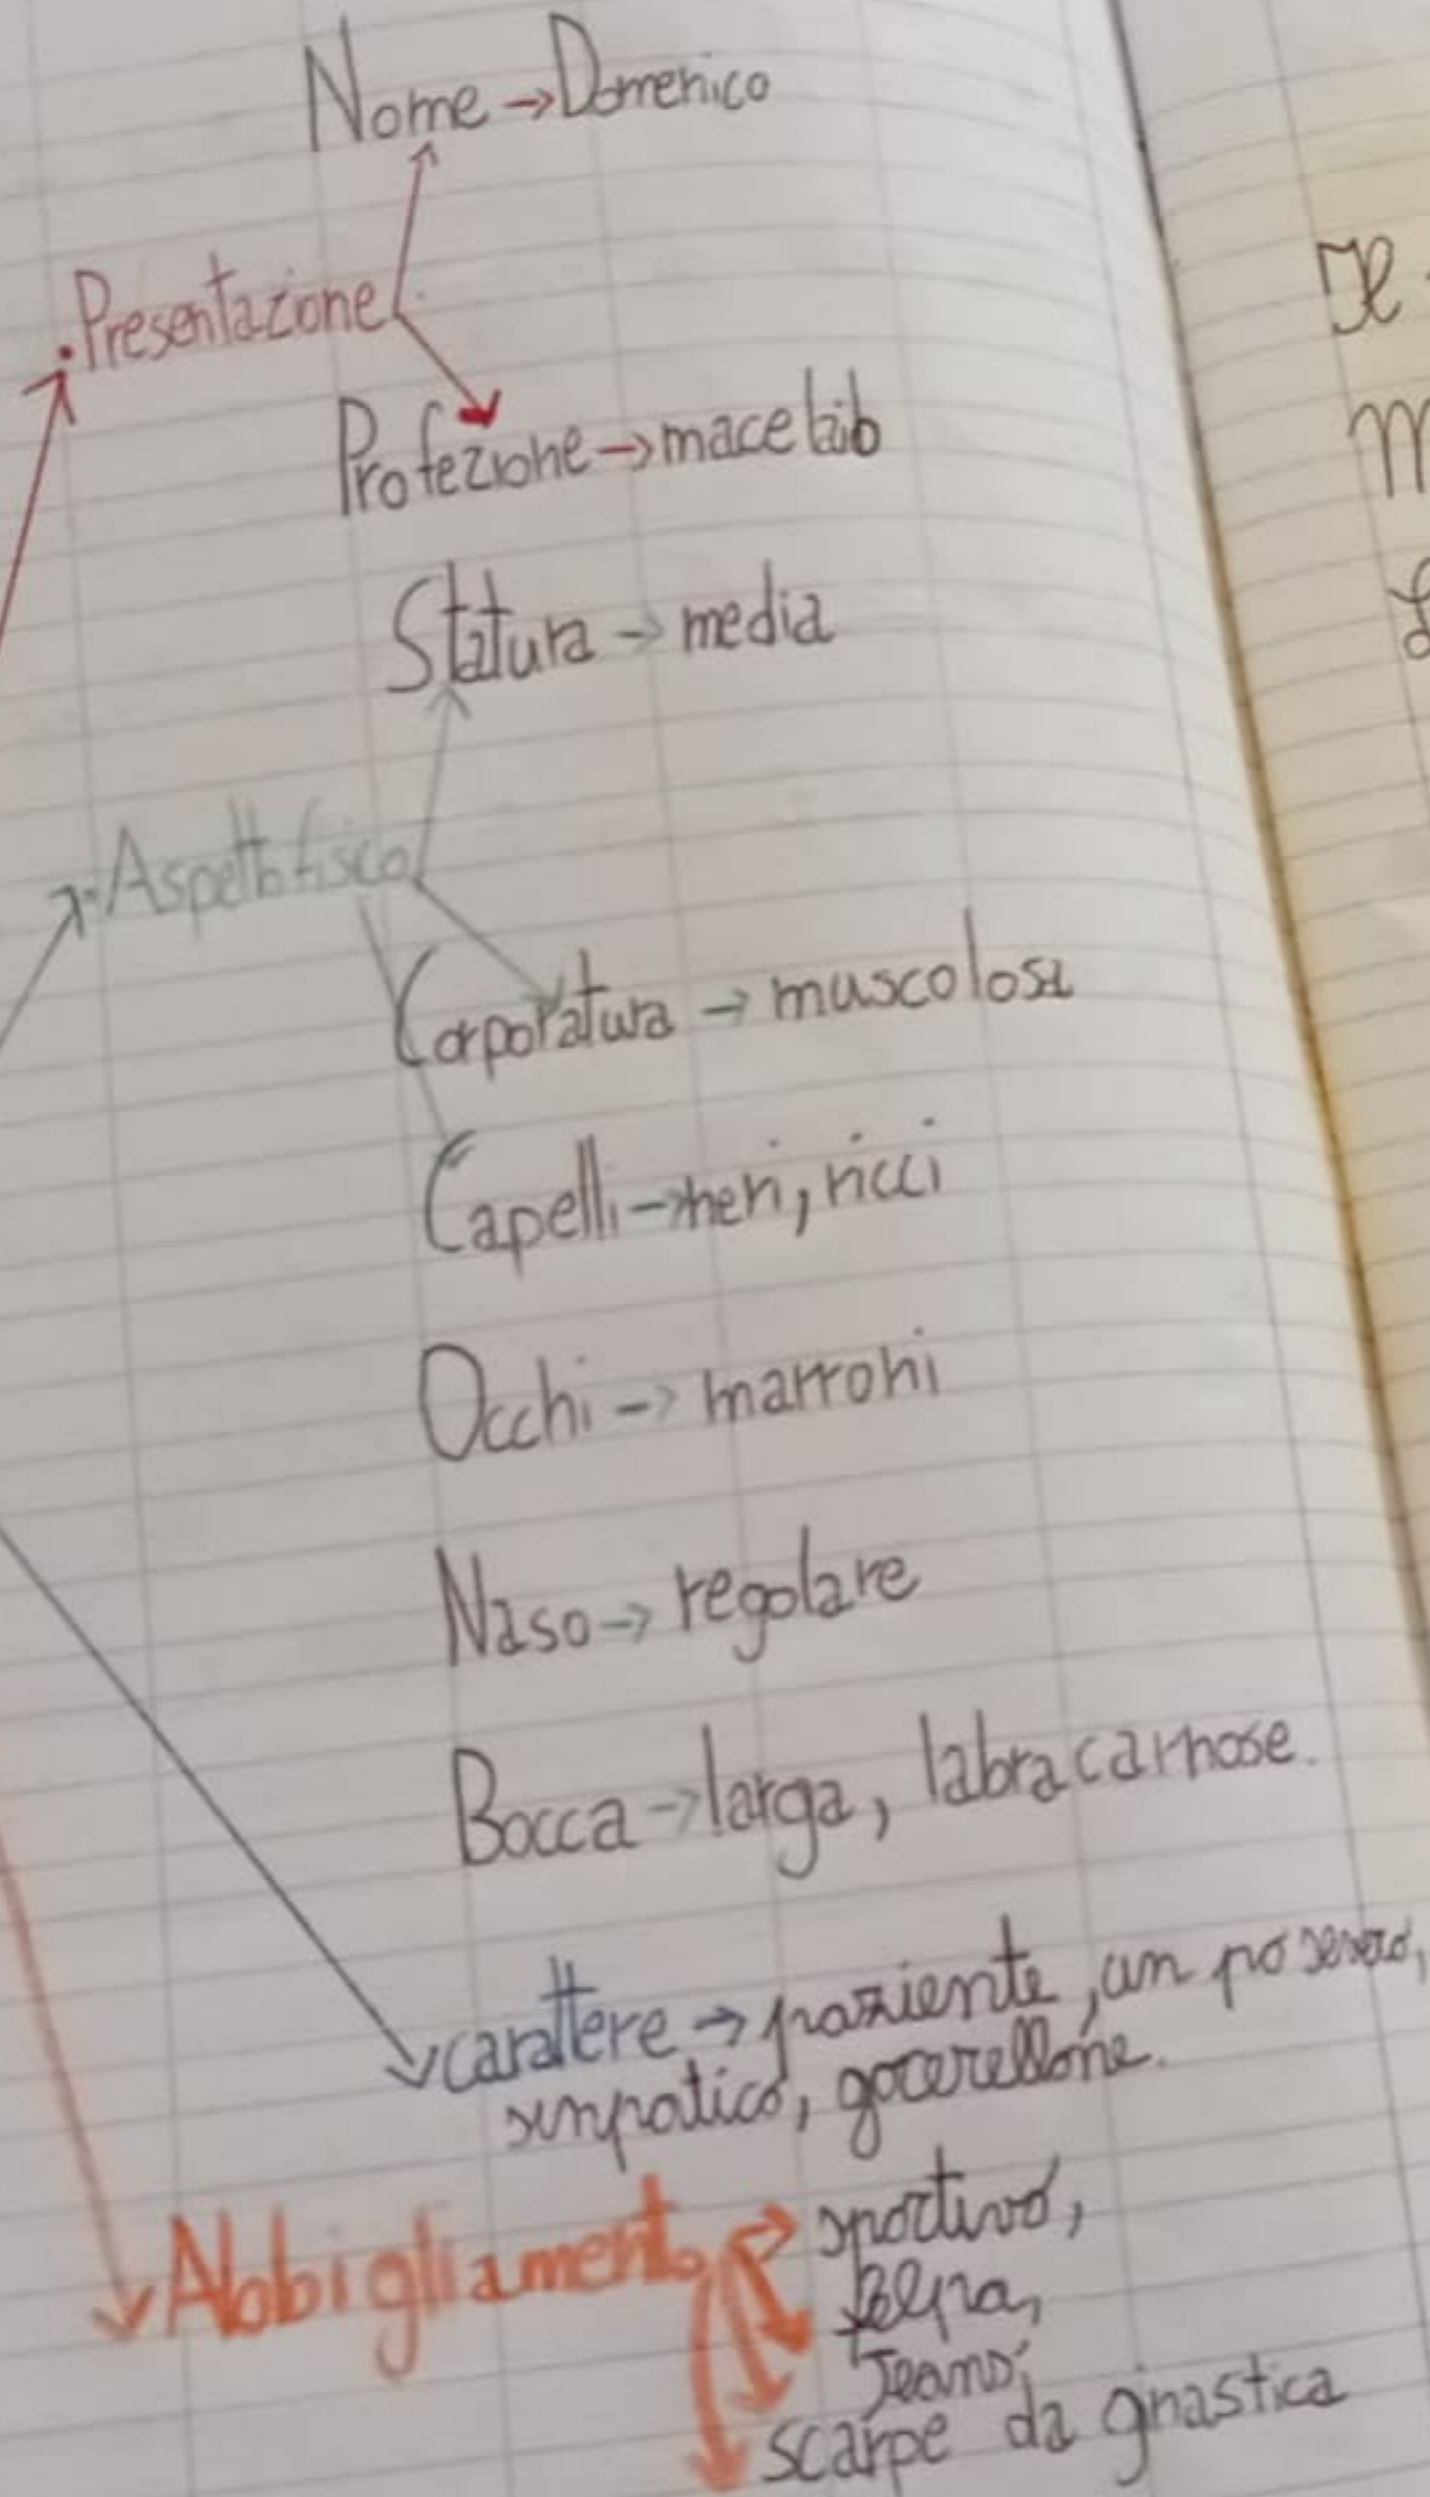 Nome → Domenico
. Presentazione
Profezione → macelaio
Statura → media
. Aspetto fisico
Corporatura → muscolosa
Capelli → neri, ricci
Occhi → marroni
Naso → regolare
Bocca → larga, labra carnose.
carattere → paziente, un po severo,
simpatico, gocerellone.
Abbigliamento → sportivo,
felpa,
Jeans,
scarpe da ginastica